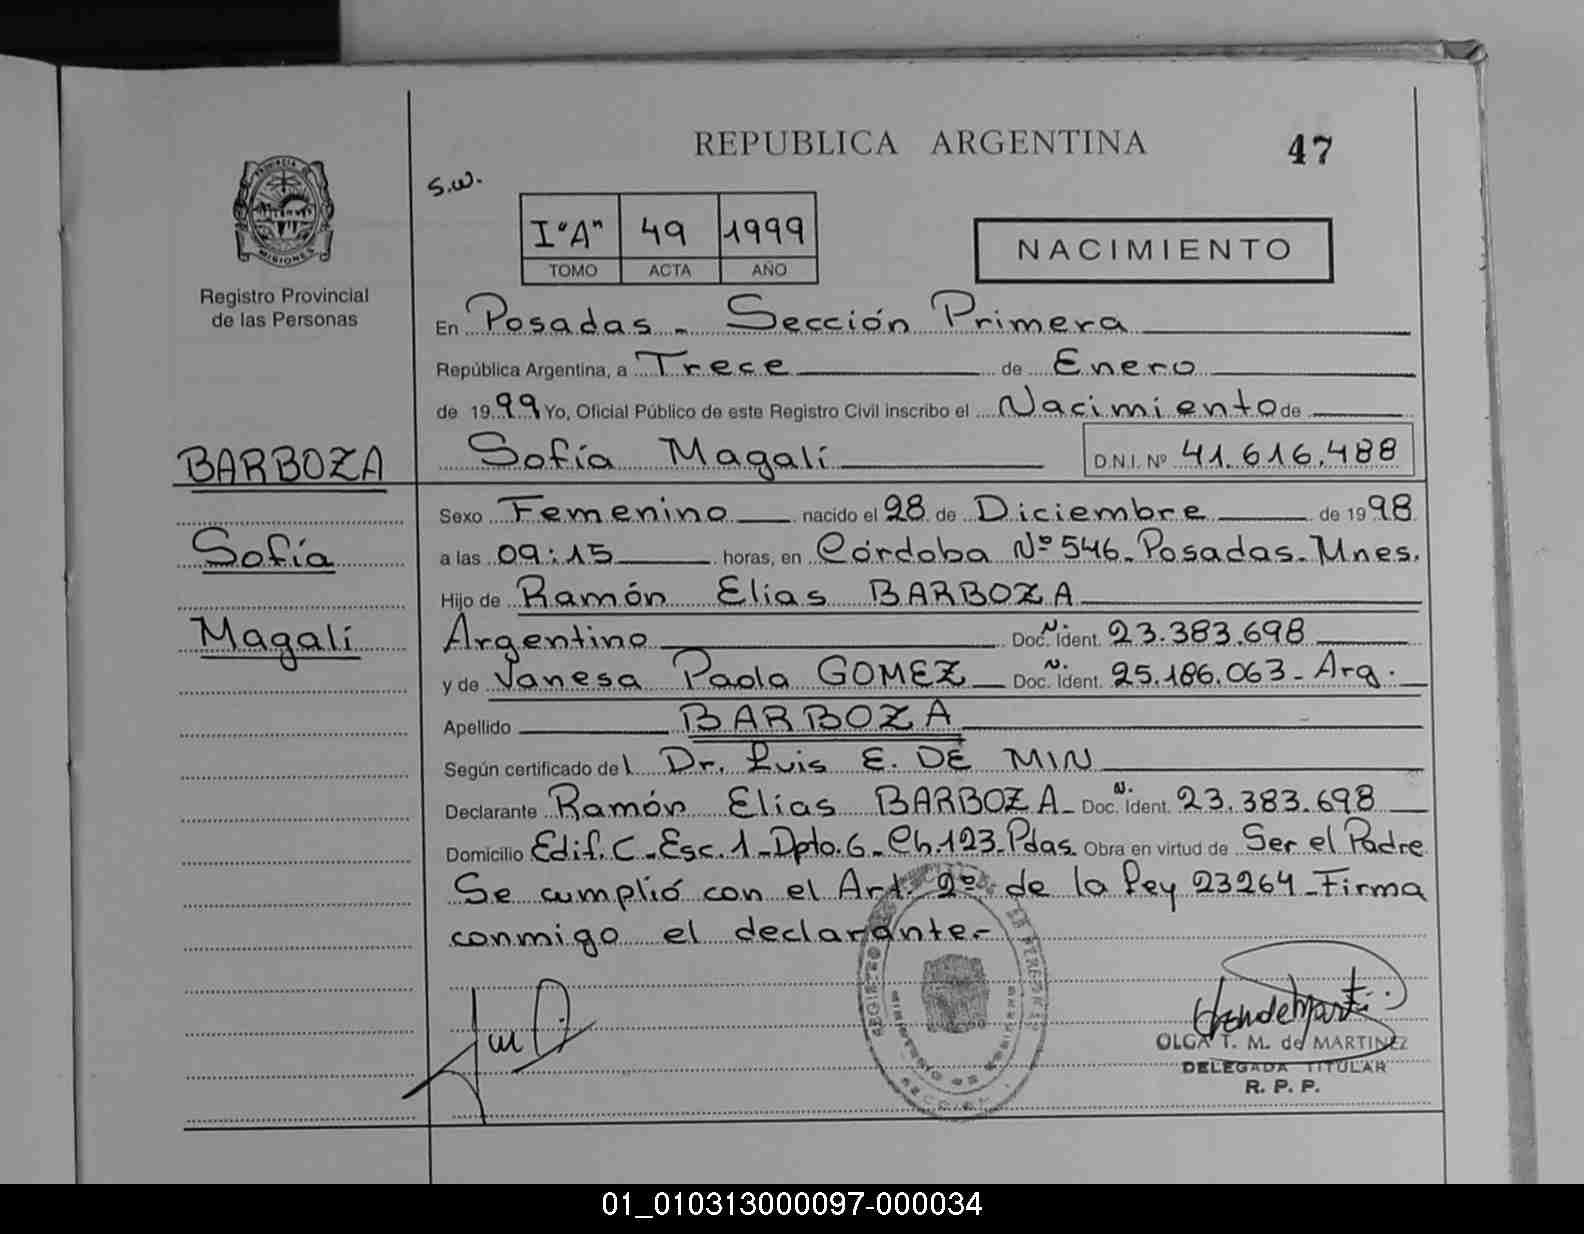 REPUBLICA ARGENTINA
47
PROVINCIA
MISIONES
Registro Provincial
de las Personas
s.w.
I "A" 49 1999
TOMO ACTA AÑO
NACIMIENTO
En Posadas - Sección Primera
República Argentina, a Trece de Enero
de 1999 Yo, Oficial Público de este Registro Civil inscribo el Nacimiento de
BARBOZA
Sofía Magalí D.N.I. Nº 41.616.488
Sexo Femenino nacido el 28 de Diciembre de 1998
Sofía
a las 09:15 horas, en Córdoba Nº 546-Posadas-Mnes.
Hijo de Ramón Elias BARBOZA
Magalí
Argentino Doc. N. Ident. 23.383.698
y de Vanesa Paola GOMEZ Doc. N. Ident. 25.186.063- Arg.
Apellido BARBOZA
Según certificado del Dr. Luis E. DE MIN
Declarante Ramón Elias BARBOZA- Doc. N. Ident. 23.383.698
Domicilio Edif. C-Esc. 1-Dpto. 6-Ch.123-Pdas. Obra en virtud de Ser el Padre
Se cumplió con el Art. 2º de la Ley 23264-Firma
conmigo el declarante-
OLGA T. M. de MARTINEZ
DELEGADA TITULAR
R. P. P.
01_010313000097-000034